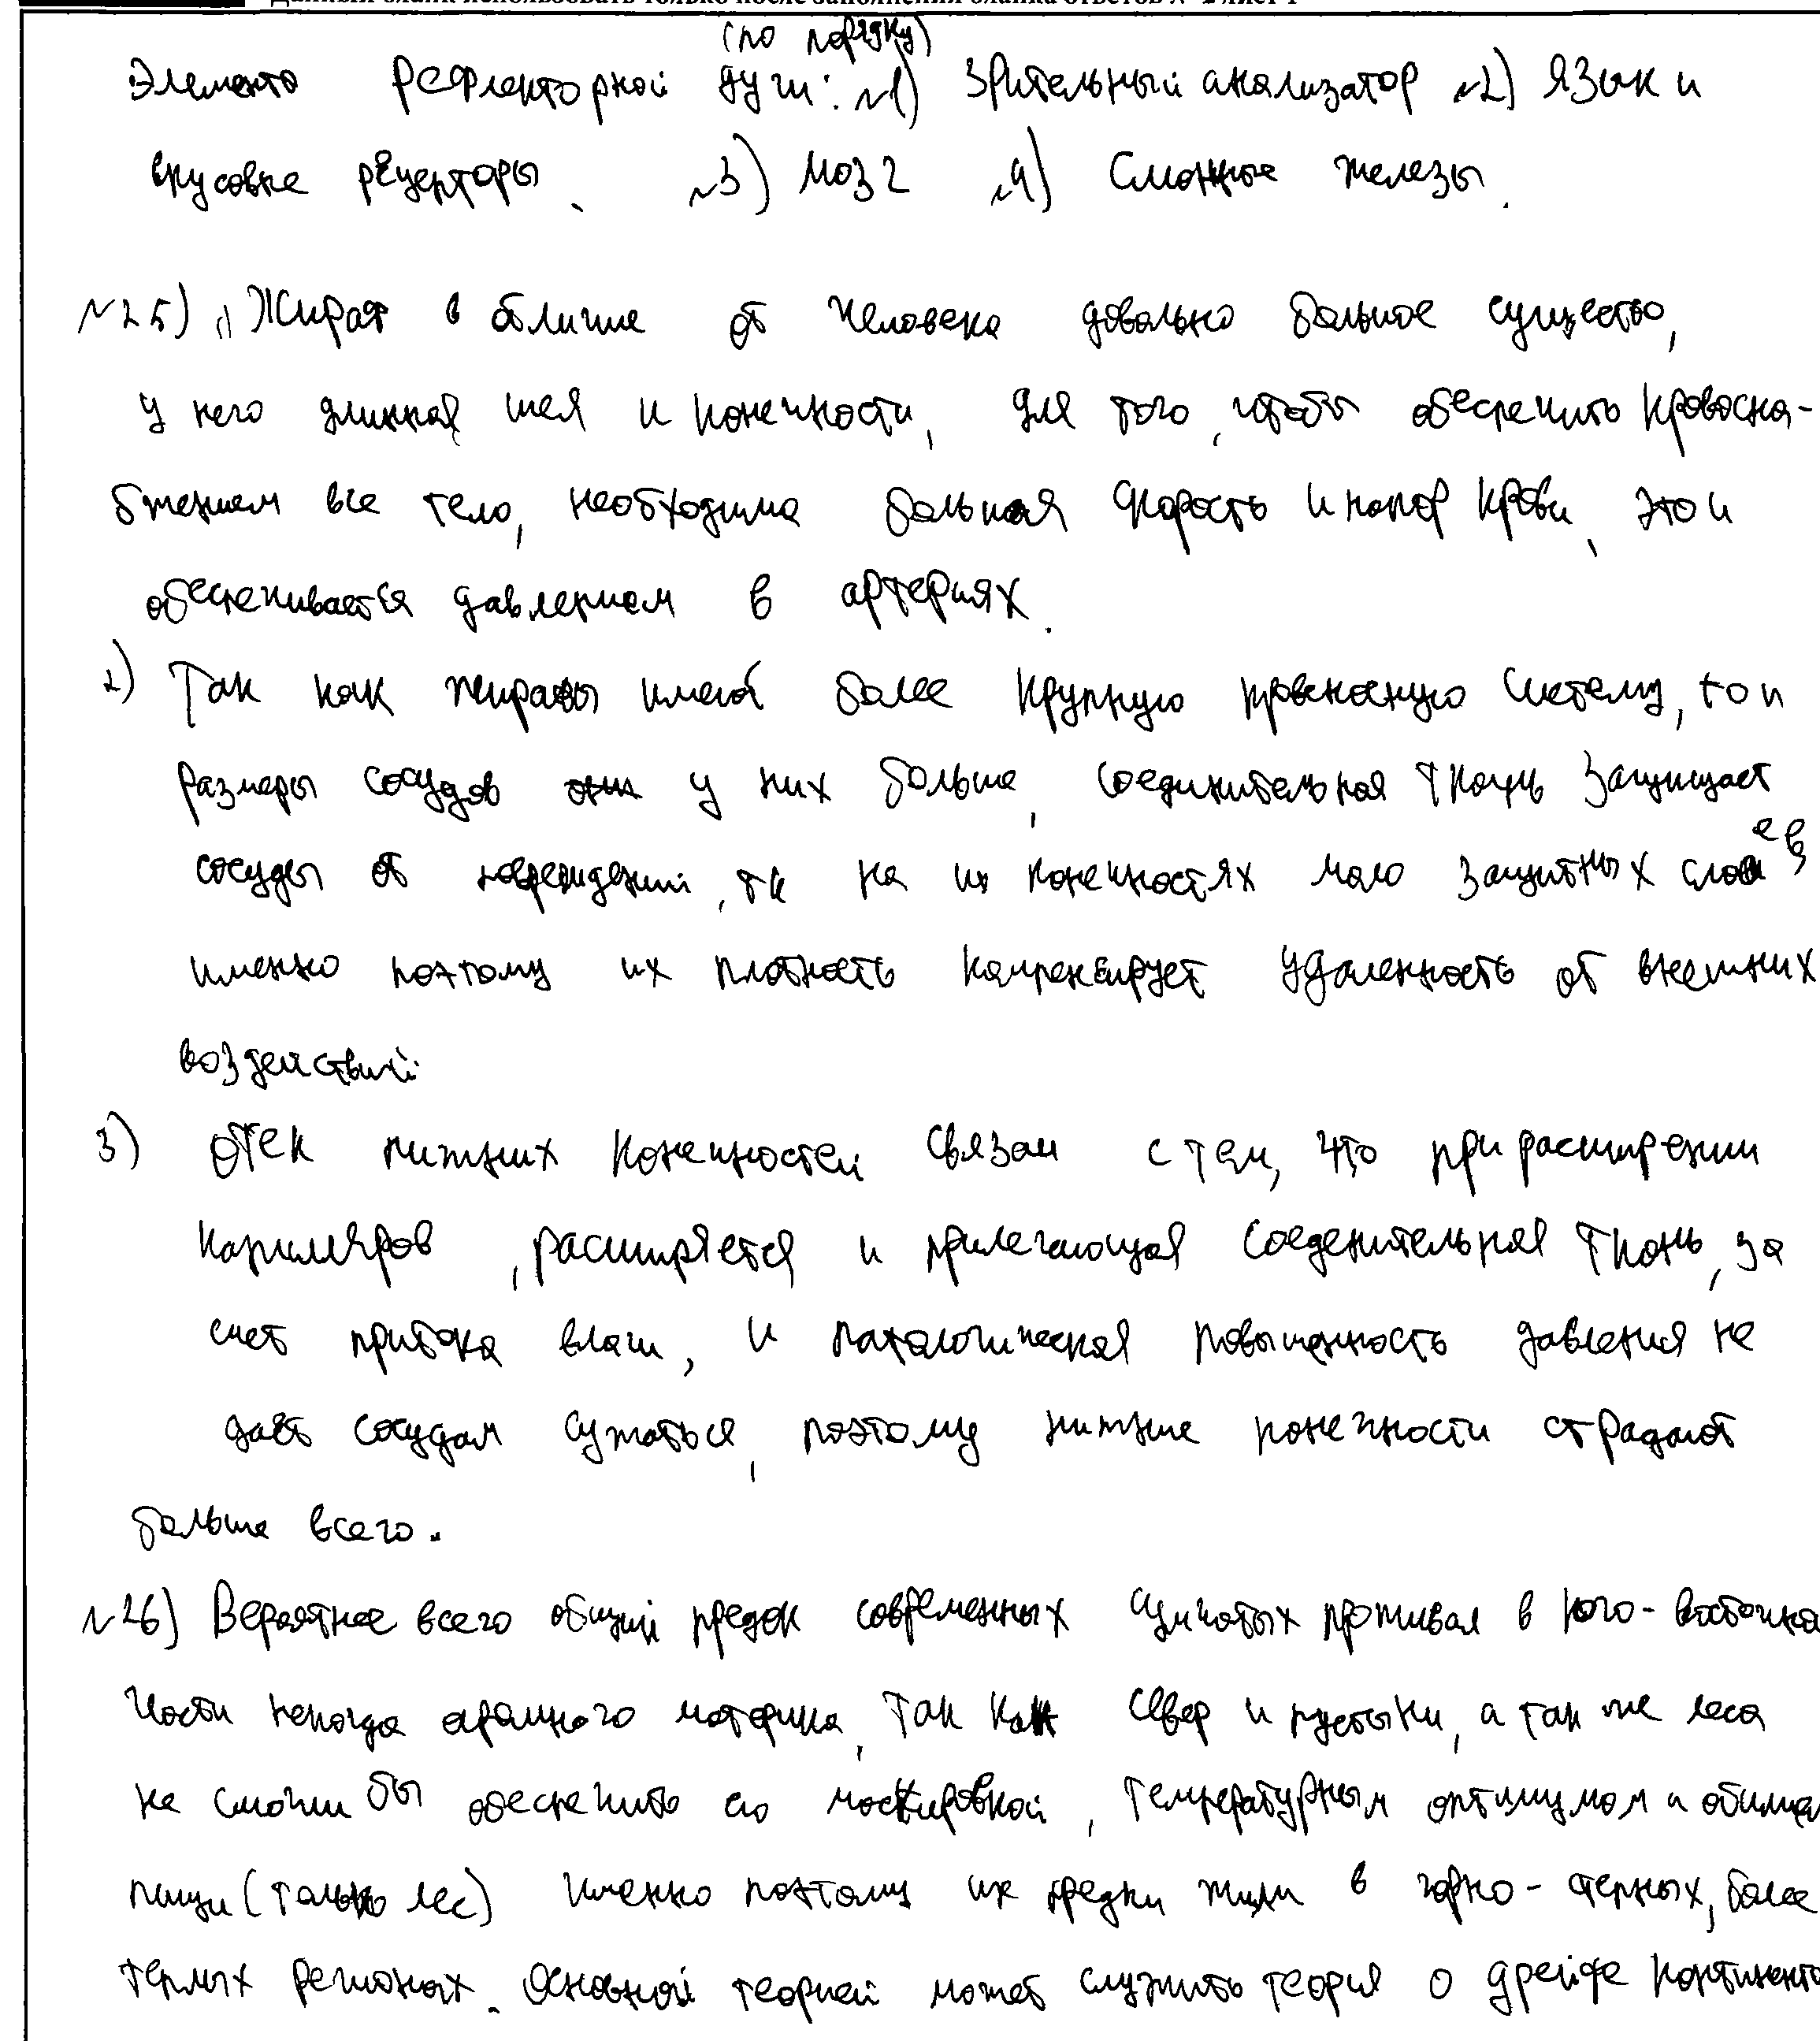 (по порядку)
Элементы рефлекторной дуги: №1) Зрительный анализатор №2) Язык и
вкусовые рецепторы. №3) Мозг №4) Слюнные железы.
№25) 1) Жираф в отличие от человека довольно большое существо,
у него длинная шея и конечности, для того, чтобы обеспечить кровосна-
бжением все тело, необходима большая скорость и напор крови, это и
обеспечивается давлением в артериях.
2) Так как жирафы имеют более крупную кровеносную систему, то и
размеры сосудов у них больше, соединительная ткань защищает
сосуды от повреждений, тк на их конечностях мало защитных слоев
именно поэтому их плотность компенсирует удаленность от внешних
воздействий
3) Отек нижних конечностей связан с тем, что при расширении
капилляров, расширяется и прилегающая соеденительная ткань, за
счет притока влаги, и патологическая повышенность давления не
даёт сосудам сужаться, поэтому нижние конечности страдают
больше всего.
№26) Вероятнее всего общий предок современных сумчатых проживал в юго-восточно
части некогда огромного материка, так как север и пустыни, а так же леса
не смогли бы обеспечить его маскировкой, температурным оптимумом и
пищи (только лес) Именно поэтому их предки жили в горно-степных, более
теплых регионах. Основной теорией может служить теория о дрейфе континенто